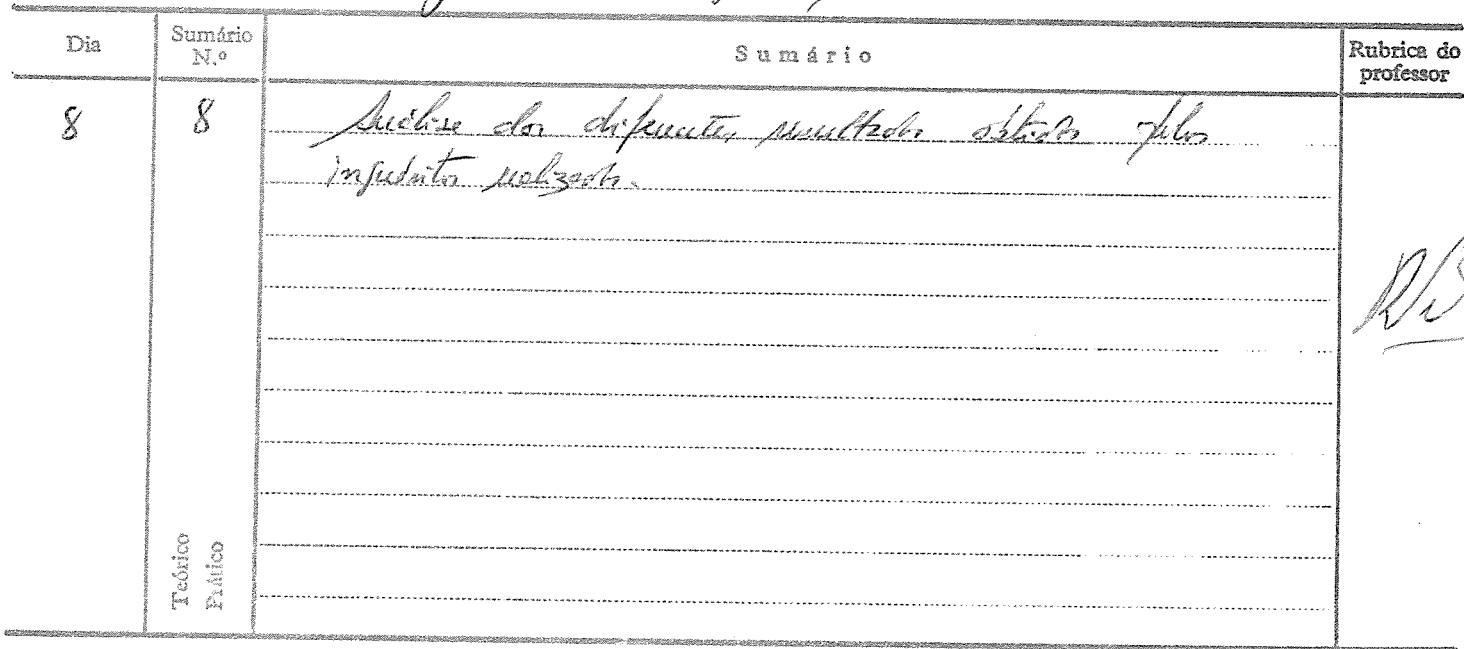 Dia
Sumário N.º
Sumário
Rubrica do professor
8
8
Análise dos diferentes resultados obtidos pelos
inquéritos realizados.
Teórico
Prático